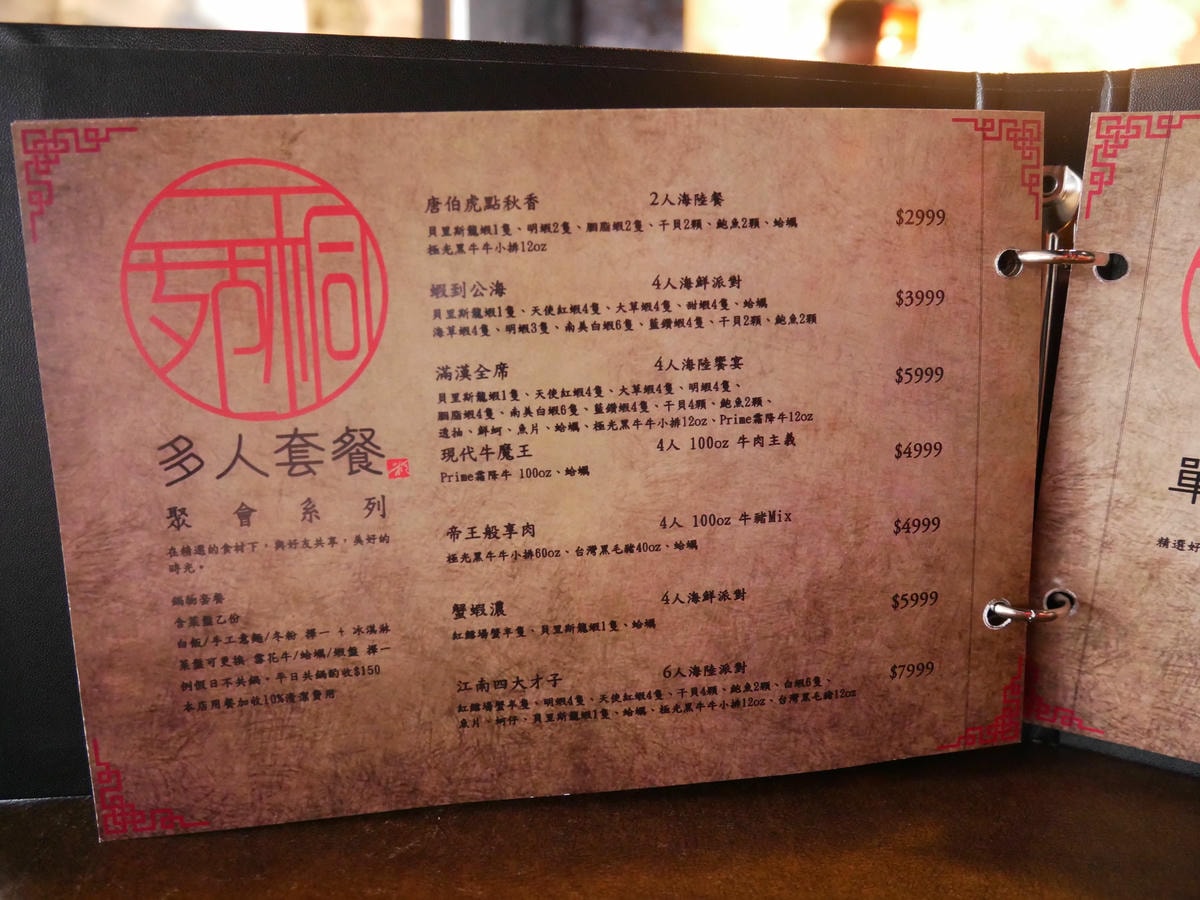 多人套餐
聚會系列
在精選的食材下,與好友共享,美好的
時光。
鍋物套餐
含菜盤乙份
白飯/手工意麵/冬粉 擇一 + 冰淇淋
菜盤可更換 雪花牛/蛤蠣/蝦盤 擇一
例假日不共鍋、平日共鍋酌收$150
本店用餐加收10%清潔費用
唐伯虎點秋香 2人海陸餐 $2999
貝里斯龍蝦1隻、明蝦2隻、胭脂蝦2隻、干貝2顆、鮑魚2顆、蛤蠣
極光黑牛牛小排12oz
蝦到公海 4人海鮮派對 $3999
貝里斯龍蝦1隻、天使紅蝦4隻、大草蝦4隻、甜蝦4隻、蛤蠣
海草蝦4隻、明蝦3隻、南美白蝦6隻、藍鑽蝦4隻、干貝2顆、鮑魚2顆
滿漢全席 4人海陸饗宴 $5999
貝里斯龍蝦1隻、天使紅蝦4隻、大草蝦4隻、明蝦4隻、
胭脂蝦4隻、南美白蝦6隻、藍鑽蝦4隻、干貝4顆、鮑魚2顆、
透抽、鮮蚵、魚片、蛤蠣、極光黑牛牛小排12oz、Prime霜降牛12oz
現代牛魔王 4人 100oz 牛肉主義 $4999
Prime霜降牛 100oz、蛤蠣
帝王般享肉 4人 100oz 牛豬Mix $4999
極光黑牛牛小排60oz、台灣黑毛豬40oz、蛤蠣
蟹蝦濃 4人海鮮派對 $5999
紅蟳場蟹半隻、貝里斯龍蝦1隻、蛤蠣
江南四大才子 6人海陸派對 $7999
蟹半隻、明蝦4隻、天使紅蝦4隻、干貝4顆、鮑魚2顆、白蝦6隻、
魚片、蚵仔、貝里斯龍蝦1隻、蛤蠣、極光黑牛牛小排12oz、台灣黑毛豬12oz
單
精選好